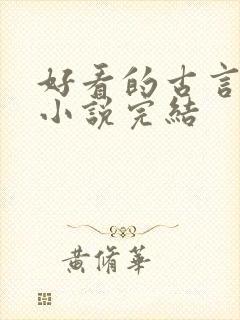 好看的古言
小說完結
黃脩華